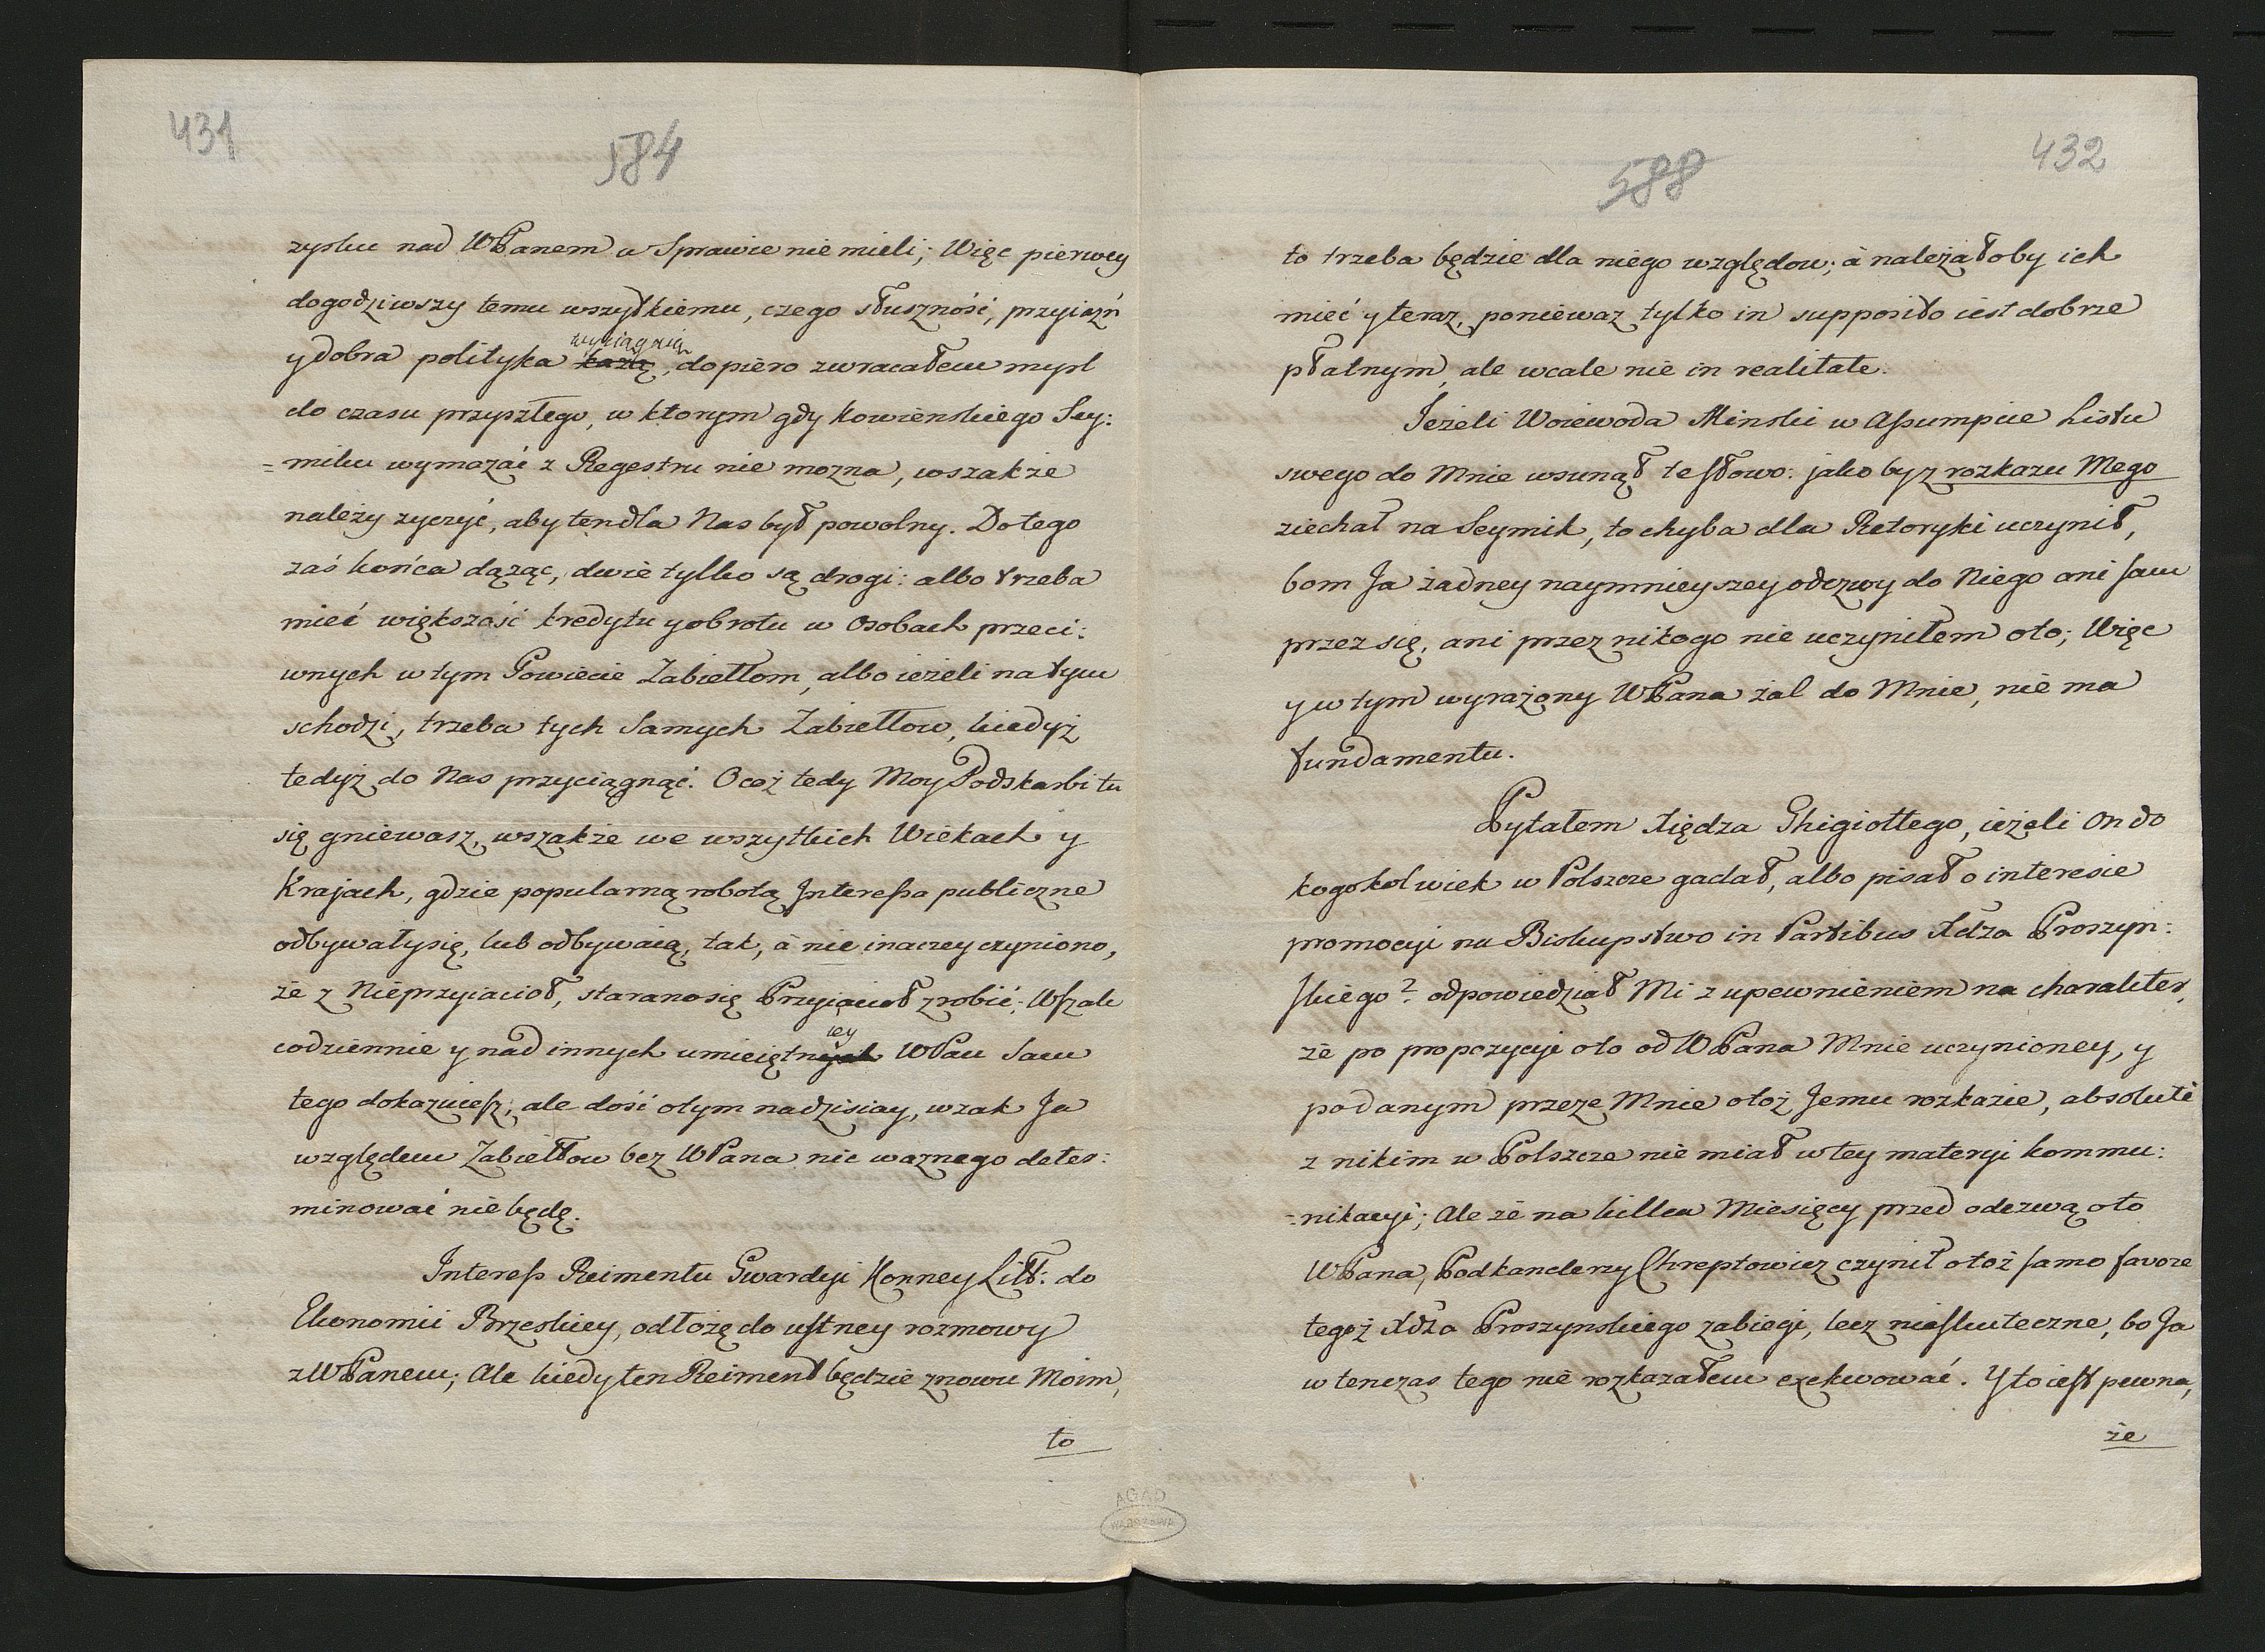 431
584
zysku nad WPanem w Sprawie nie mieli; Więc pierwey
dogodziwszy temu wszystkiemu, czego słuszność, przyiaźń
wyciągaią
y dobra polityka każą, dopiero zwracałem mysl
do czasu przyszłego, w ktorym gdy Kowienskiego Sey:
=miku wymazać z Regestru nie mozna, wszakze
należy zyczyć, aby ten dla Nas był powolny. Do tego
zaś końca dążąc, dwie tylko są drogi: albo trzeba
mieć większość kredytu y obrotu w Osobach przeci:
wnych w tym Powiecie Zabiełłom, albo ieżeli na tym
schodzi, trzeba tych Samych Zabiełłow, kiedyż
tedyż do Nas przyciągnąć. Ocoż tedy Moy Podskarbi tu
się gniewasz, wszakże we wszytkich Wiekach y
Krajach, gdzie popularną robotą Interessa publiczne
odbywały się, lub odbywaią, tak, à nie inaczey czyniono,
że z Nieprzyiacioł, starano się Przyiacioł zrobić; Wszak
iey
codziennie y nad innych umieiętnych WPan Sam
tego dokazuiesz; ale dość o tym na dzisiay, wzak Ja
względem Zabiełłow bez WPana nic waznego deter:
minować nie będę.
Interess Reimentu Gwardyi Konney Litt: do
Ekonomii Brzeskiey, odłożę do ustney rozmowy
z WPanem; Ale kiedy ten Reiment będzie znowu Moim,
to
432
588
to trzeba będzie dla niego względow; à należałoby ich
mieć y teraz, poniewaz tylko in supposito iest dobrze
płatnym, ale wcale nie in realitate.
Jeżeli Woiewoda Minski w Assumpcie Listu
swego do Mnie wsunął te słowo: jako by z rozkazu Mego
ziechał na Seymik, to chyba dla Retoryki uczynił,
bom Ja żadney naymnieyszey odezwy do Niego ani sam
przez się, ani przez nikogo nie uczyniłem oto; Więc
y w tym wyrażony WPana żal do Mnie, nie ma
fundamentu.
Pytałem Xiędza Ghigiottego, ieżeli On do
kogokolwiek w Polszcze gadał, albo pisał o interesie
promocyi na Biskupstwo in Partibus Xdza Proszyn:
skiego? odpowiedział Mi z upewnieniem na charakter,
że po propozycyi oto od WPana Mnie uczynioney, y
podanym przeze Mnie otoż Jemu rozkazie, absoluté
z nikim w Polszcze nie miał w tey materyi kommu:
=nikacyi; Ale że na kilka Miesięcy przed odezwą oto
WPana, Podkanclerzy Chreptowicz czynił otoż samo favore
tegoż Xdza Proszynskiego zabiegi, lecz nieskuteczne, bo Ja
w tenczas tego nie rozkazałem exekwować. Y to iest pewna,
że
AGAD
WARSZAWA